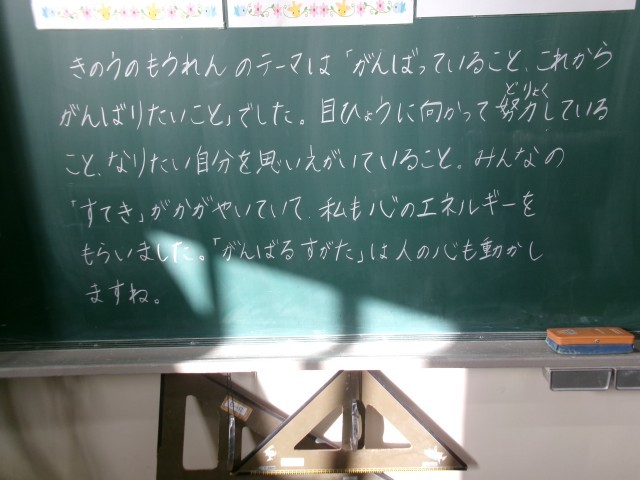 きのうのもうれんのテーマは「がんばっていること、これから
がんばりたいこと」でした。目ひょうに向かって努力している
どりょく
こと、なりたい自分を思いえがいていること。みんなの
「すてき」がかがやいていて、私も心のエネルギーを
もらいました。「がんばるすがた」は人の心も動かし
ますね。